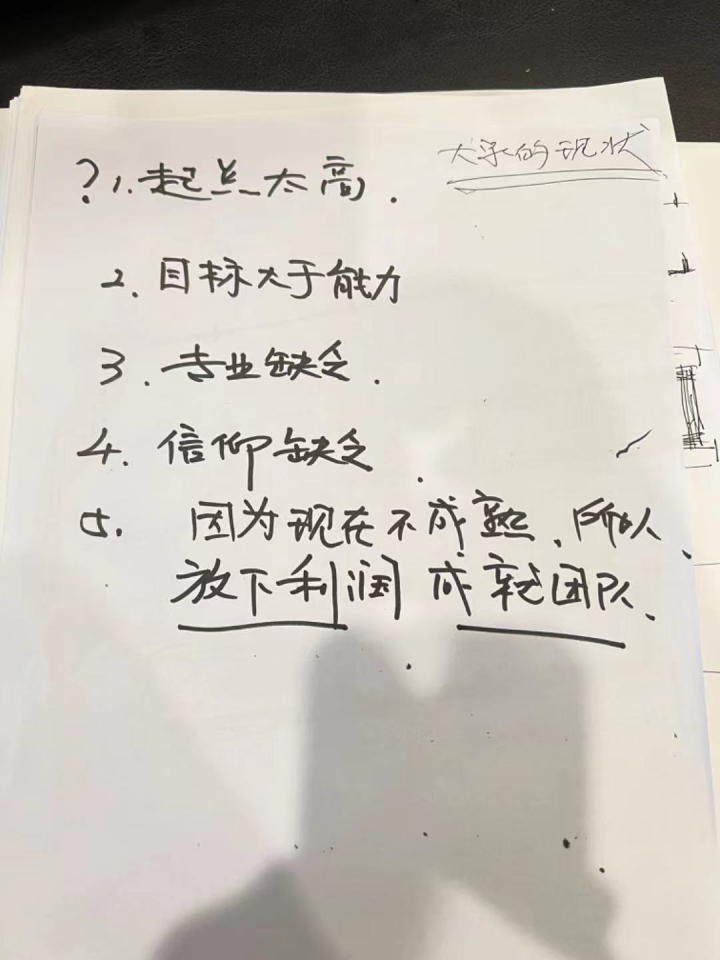 的现状
? 1. 起点太高.
2. 目标大于能力
3. 专业缺乏.
4. 信仰缺乏.
5. 因为现在不成熟、所以、
放下利润 成就团队、